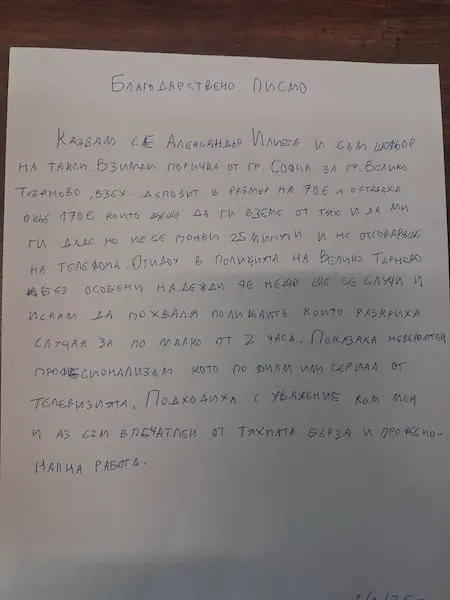 Благодарствено писмо
Казвам се Александър Илиев и съм шофьор
на такси. Взимам поръчка от гр. София за гр. Велико
Търново, взех депозит в размер на 70€ и остадаха
още 170€ които щеше да ги вземе от тях и да ми
ги даде но не се появи 25 минути и не отговаряше
на телефона. Отидох в полицията на Велико Търново
без особени надежди че нещо ще се случи и
искам да похваля полицаите които разкриха
случая за по малко от 2 часа. Показаха невероятен
професионализъм кото по филм или сериал от
телевизията. Подходиха с уважение към мен
и аз съм впечатлен от тяхната бърза и професио-
нална работа.